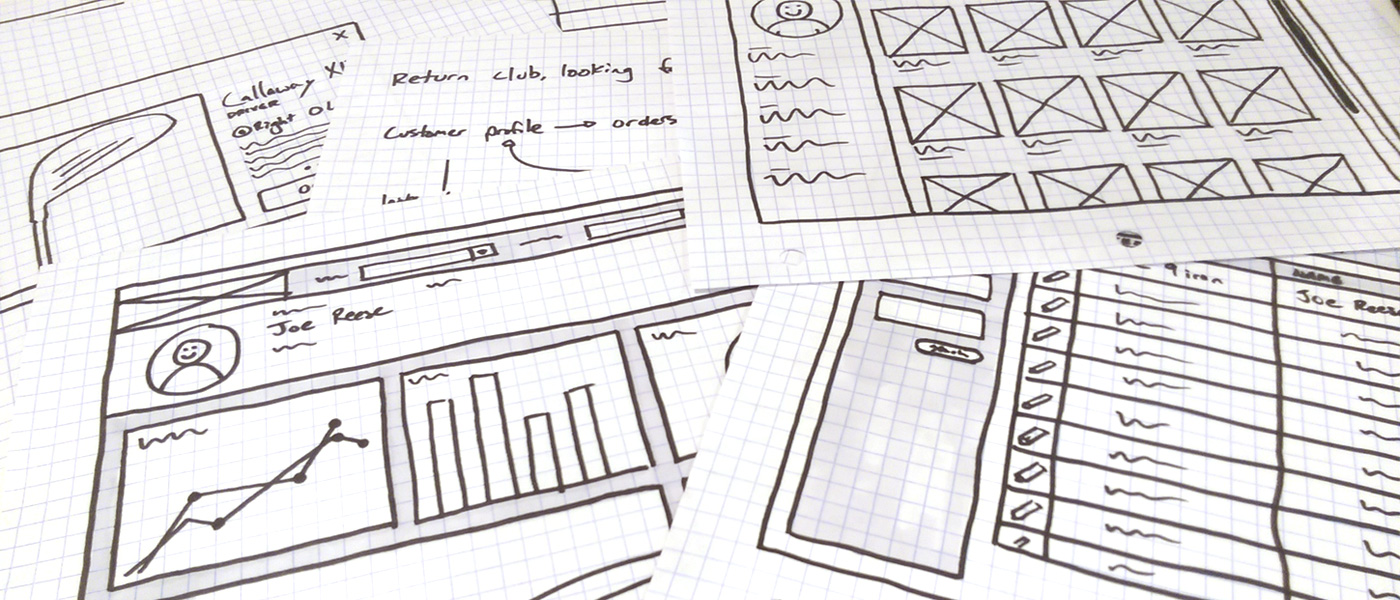 x
Callaway X
DRIVER
Right OL
Return club, looking f
Customer profile → orders
Joe Reese
9 iron
NAME
Joe Reese